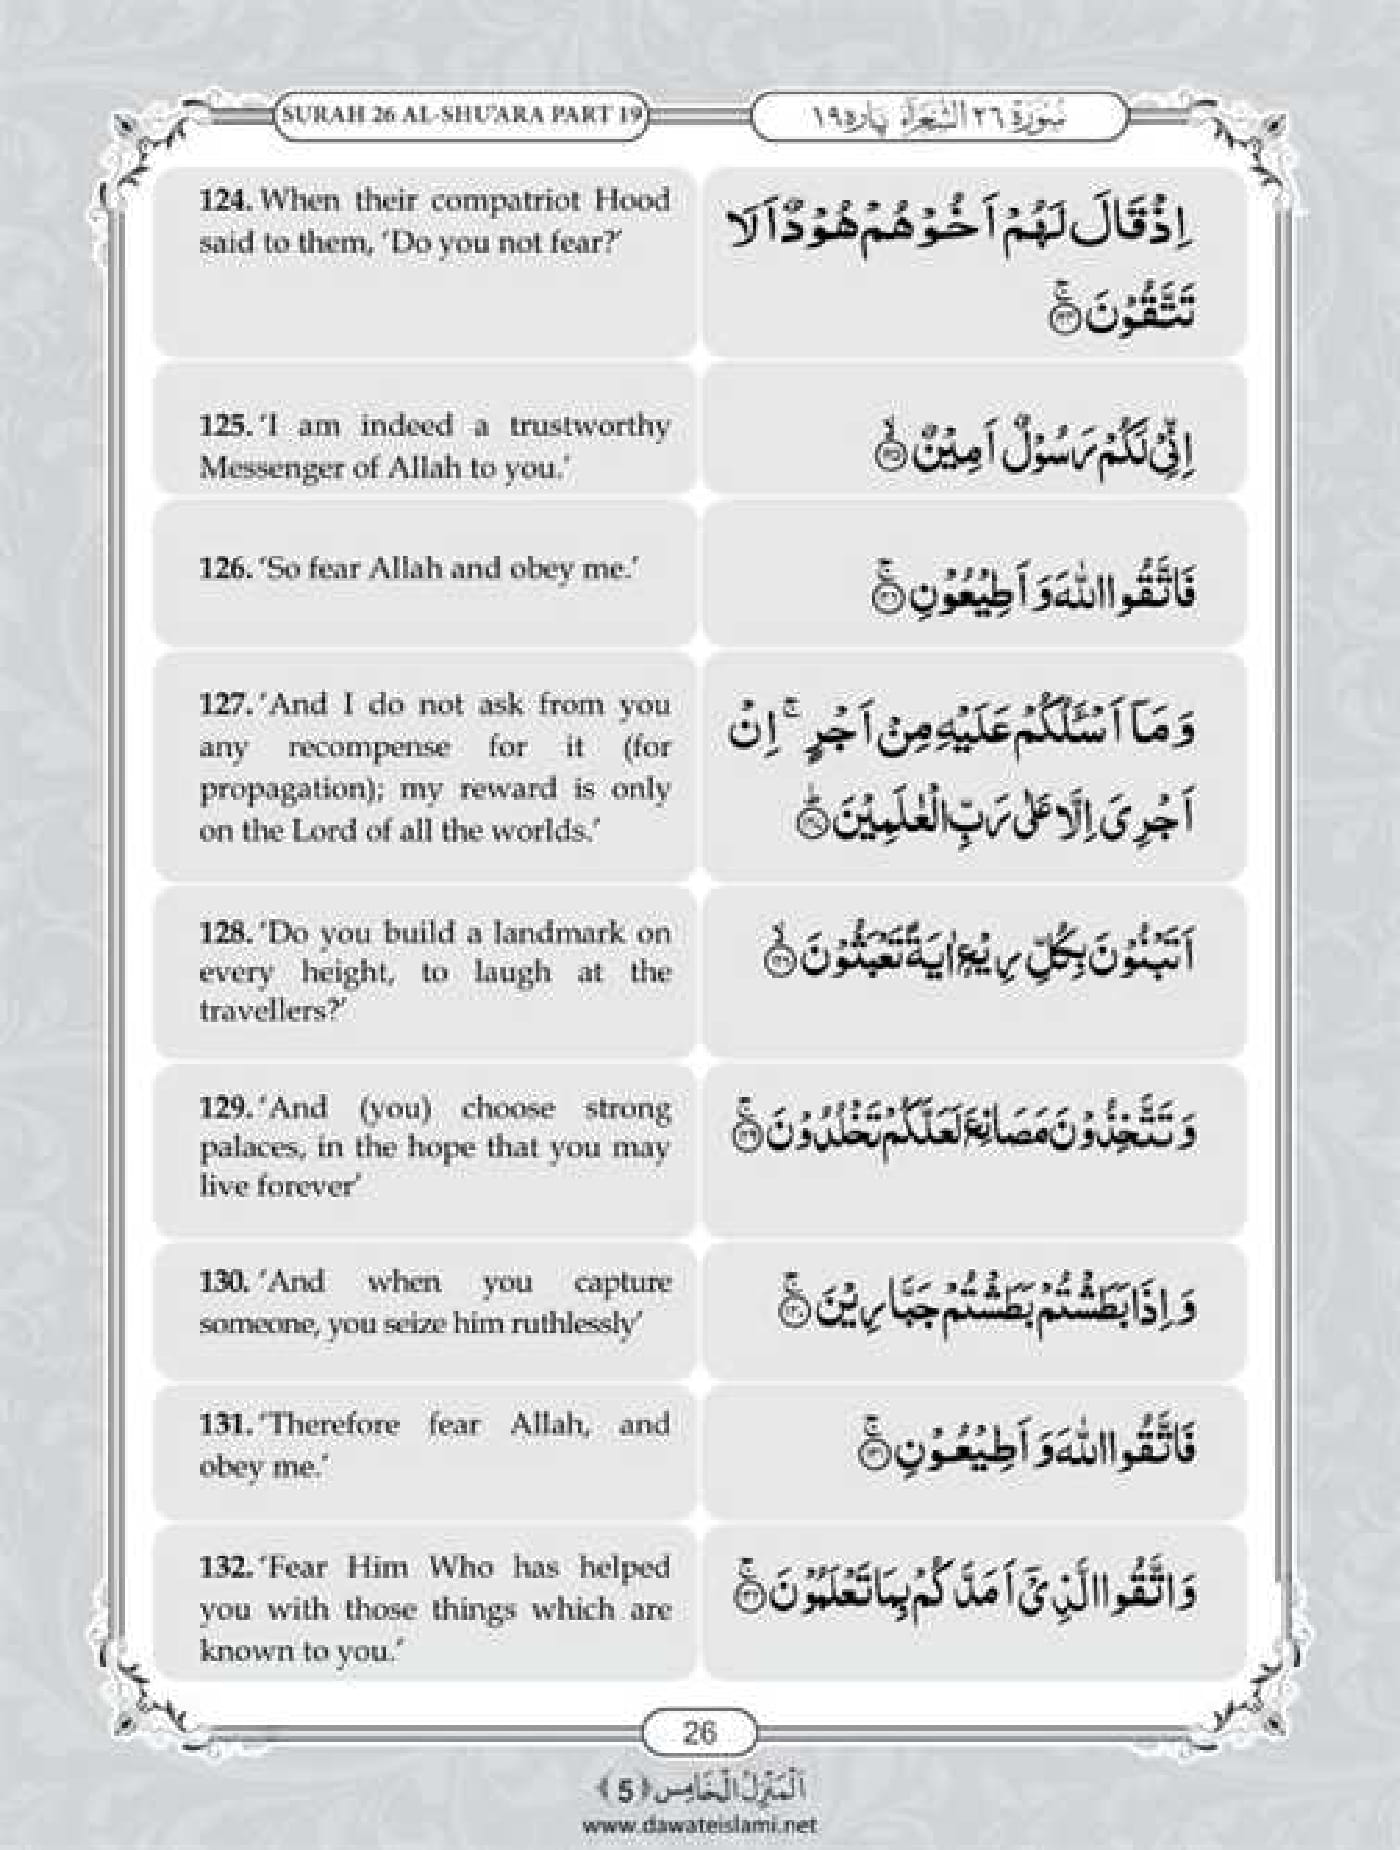 SURAH 26 AL-SHU'ARA PART 19
سُوْرَةُ ٢٦ الشُّعَرَآءِ پارہ ١٩
124. When their compatriot Hood
said to them, ‘Do you not fear?’
اِذْ قَالَ لَهُمْ اَخُوْهُمْ هُوْدٌ اَلَا
تَتَّقُوْنَ ﴿۱۲۴﴾
125. ‘I am indeed a trustworthy
Messenger of Allah to you.’
اِنِّیْ لَكُمْ رَسُوْلٌ اَمِیْنٌ ﴿۱۲۵﴾
126. ‘So fear Allah and obey me.’
فَاتَّقُوا اللّٰهَ وَ اَطِیْعُوْنِ ﴿۱۲۶﴾
127. ‘And I do not ask from you
any recompense for it (for
propagation); my reward is only
on the Lord of all the worlds.’
وَ مَاۤ اَسْـَٔلُكُمْ عَلَیْهِ مِنْ اَجْرٍ ۚ اِنْ
اَجْرِیَ اِلَّا عَلٰی رَبِّ الْعٰلَمِیْنَ ﴿۱۲۷﴾
128. ‘Do you build a landmark on
every height, to laugh at the
travellers?’
اَتَبْنُوْنَ بِكُلِّ رِیْعٍ اٰیَةً تَعْبَثُوْنَ ﴿۱۲۸﴾
129. ‘And (you) choose strong
palaces, in the hope that you may
live forever’
وَ تَتَّخِذُوْنَ مَصَانِعَ لَعَلَّكُمْ تَخْلُدُوْنَ ﴿۱۲۹﴾
130. ‘And when you capture
someone, you seize him ruthlessly’
وَ اِذَا بَطَشْتُمْ بَطَشْتُمْ جَبَّارِیْنَ ﴿۱۳۰﴾
131. ‘Therefore fear Allah, and
obey me.’
فَاتَّقُوا اللّٰهَ وَ اَطِیْعُوْنِ ﴿۱۳۱﴾
132. ‘Fear Him Who has helped
you with those things which are
known to you.’
وَ اتَّقُوا الَّذِیْۤ اَمَدَّكُمْ بِمَا تَعْلَمُوْنَ ﴿۱۳۲﴾
26
اَلْمَنْزِلُ الْخَامِس ﴿5﴾
www.dawateislami.net